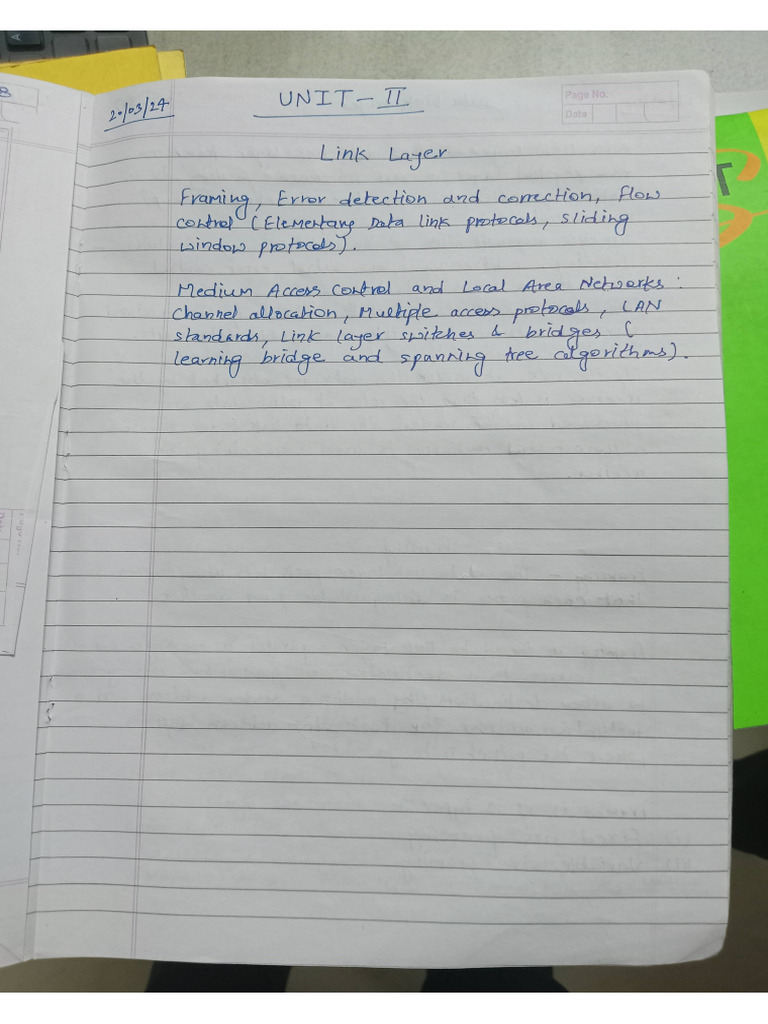 8
20/03/24
UNIT - II
Page No.
Date
Link Layer
Framing, Error detection and correction, flow
control (Elementary Data link protocols, sliding
window protocols).
Medium Access Control and Local Area Networks :
Channel allocation, Multiple access protocols, LAN
standards, Link layer switches & bridges (
learning bridge and spanning tree algorithms).
T